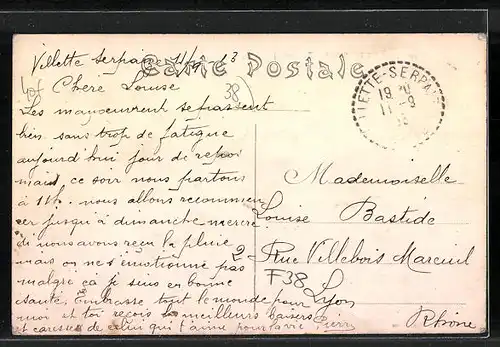 Carte Postale
Villette Serpaize 11/9 13
Chère Louise
Les manoeuvrent se passent
bien sans trop de fatigue
aujourd'hui jour de repos
mais ce soir nous partons
à 11h. nous allons recommen
cer jusqu'à dimanche mercre
di nous avons reçu la pluie
mais on ne s'émotionne pas
malgré ça je suis en bonne
santé. Embrasse tout le monde pour
moi et toi reçois les meilleurs baisers
et caresses de celui qui t'aime pour la vie Pierre
38
LETTE-SERPAI
19 20
11 - 9
13
Mademoiselle
Louise Bastide
2 Rue Villebois Mareuil
F38 Lyon
Rhône